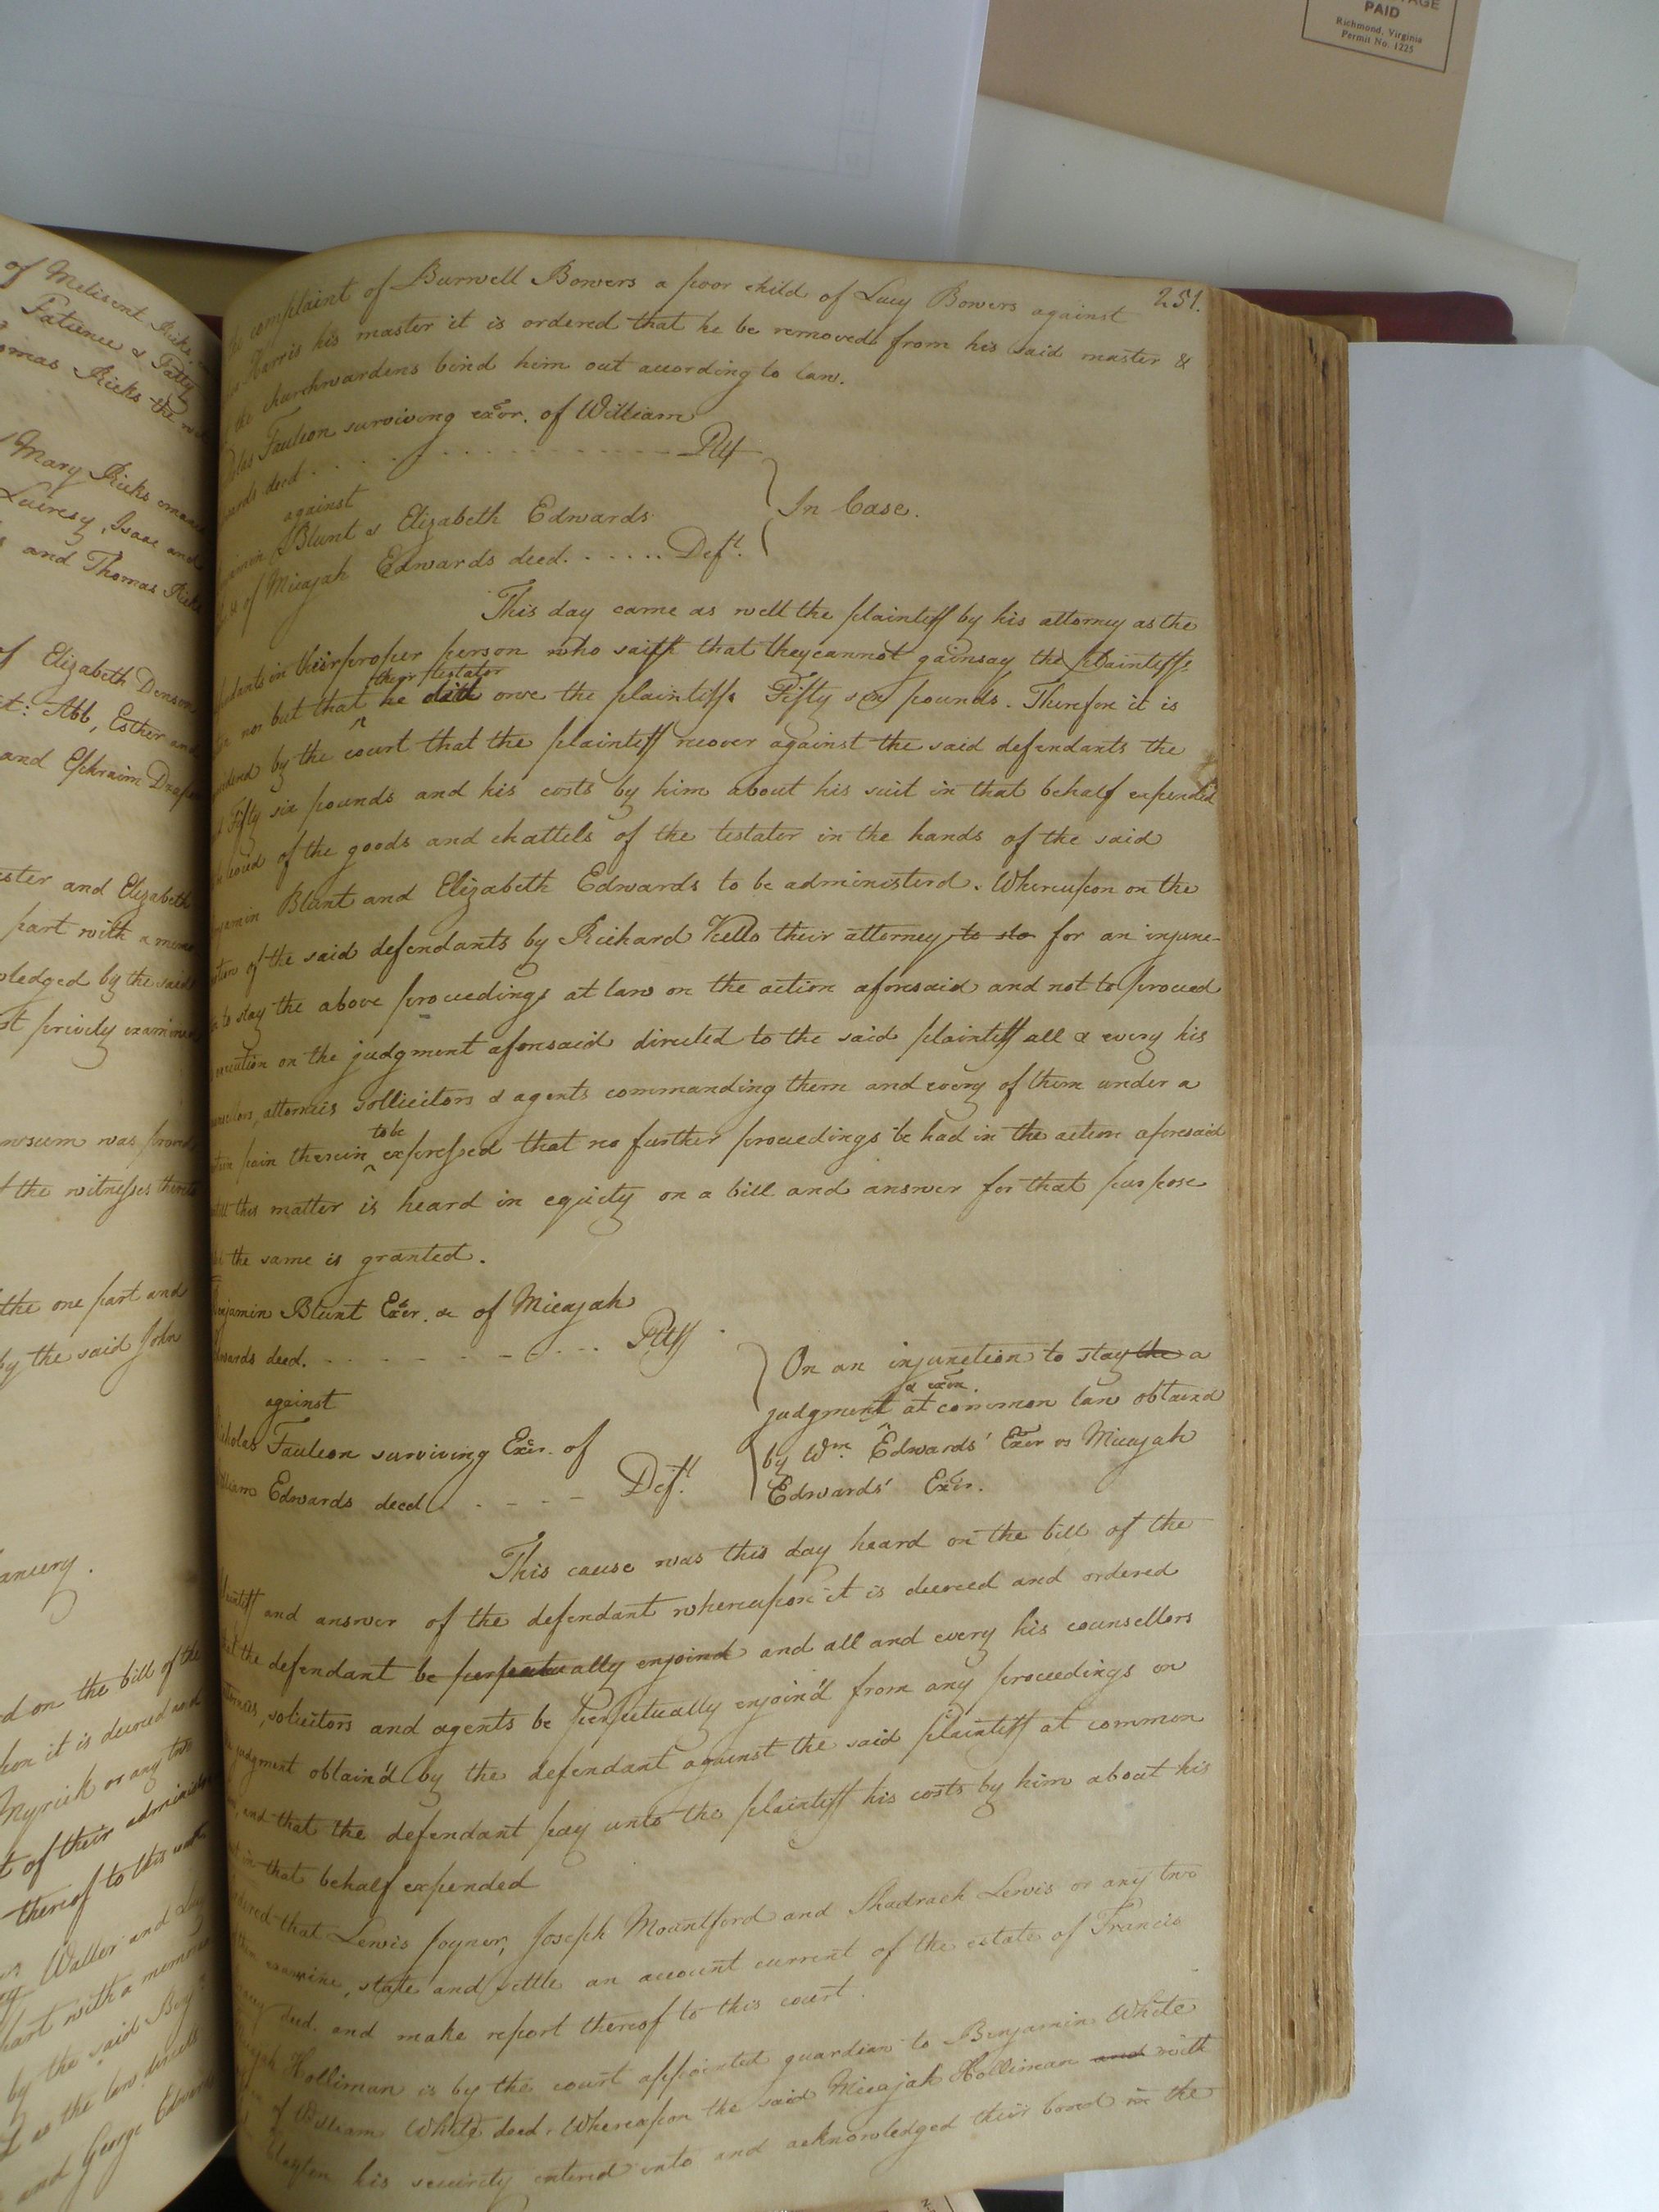 AGE
PAID
Richmond, Virginia
Permit No. 1225
of Melisent Ricks
Patience & Patty
omas Ricks the
Mary Ricks
Lucresy, Isaac and
s and Thomas Ricks
of Elizabeth Denson
st: Abb, Esther and
and Ephraim Draper
ester and Elizabeth
part with a mem
ledged by the said
st privily examined
nsum was proved
f the witnesses thereto
the one part and
by the said John
ancery.
d on the bill of the
pon it is decreed and
Myrick or any two
t of their administ
thereof to this
Waller and
part with a memor
by the said
as the law directs
and George Edwards
251.
complaint of Burwell Bowers a poor child of Lucy Bowers against
Harris his master it is ordered that he be removed from his said master &
the churchwardens bind him out according to law.
olas Faulcon surviving exor. of William
wards decd. Plt
against
amin Blunt & Elizabeth Edwards
of Micajah Edwards decd. Deft.
In Case.
This day came as well the plaintiff by his attorney as the
fendants in their proper person who saith that they cannot gainsay the plaintiffs
nor but that their testator he did owe the plaintiff Fifty six pounds. Therefore it is
by the court that the plaintiff recover against the said defendants the
Fifty six pounds and his costs by him about his suit in that behalf expended
of the goods and chattels of the testator in the hands of the said
jamin Blunt and Elizabeth Edwards to be administerd. Whereupon on the
otion of the said defendants by Richard Kello their attorney to sto for an injunc-
to stay the above proceedings at law on the action aforesaid and not to proceed
xecution on the judgment aforesaid directed to the said plaintiff all & every his
attornies sollicitors & agents commanding them and every of them under a
pain therein to be expressed that no further proceedings be had in the action aforesaid
this matter is heard in equity on a bill and answer for that purpose
the same is granted.
enjamin Blunt Exor. &c of Micajah
dwards decd. Pltff
against
icholas Faulcon surviving Exor. of
illiam Edwards decd. Deft.
On an injunction to stay the a
judgment & exon. at common law obtaind
by Wm. Edwards' Exor vs Micajah
Edwards' Exor.
This cause was this day heard on the bill of the
plaintiff and answer of the defendant whereupon it is decreed and ordered
the defendant be perpetually enjoind and all and every his counsellors
attornies, solicitors and agents be perpetually enjoin'd from any proceedings on
judgment obtain'd by the defendant against the said plaintiff at common
and that the defendant pay unto the plaintiff his costs by him about his
in that behalf expended
ordered that Lewis Joyner, Joseph Mountford and Shadrach Lewis or any two
them examine, state and settle an account current of the estate of Francis
decd. and make report thereof to this court.
Micajah Holliman is by the court appointed guardian to Benjamin White
of William White decd. Whereupon the said Micajah Holliman and with
Clayton his security entered into and acknowledged their bond in the